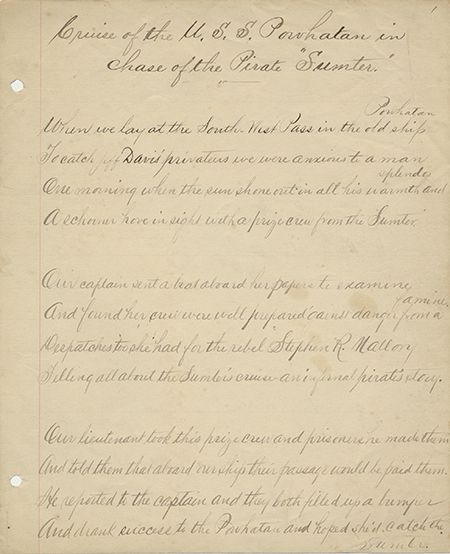 1
Cruise of the U. S. S. Powhatan in
chase of the Pirate "Sumter."
When we lay at the South West Pass in the old ship Powhatan
To catch Jeff Davis' privateers we were anxious to a man
One morning when the sun shone out in all his warmth and splendor
A schooner hove in sight with a prize crew from the Sumter.
Our captain sent a boat aboard her papers to examine
And found her crew were well prepared 'gainst danger from a famine.
Despatches too she had for the rebel Stephen R. Mallory
Telling all about the Sumter's cruise an infernal pirate's story.
Our lieutenant took this prize crew and prisoners he made them
And told them that aboard our ship their passage would be paid them.
He reported to the captain and they both filled up a bumper
And drank success to the Powhatan and hoped she'd catch the
Sumter.